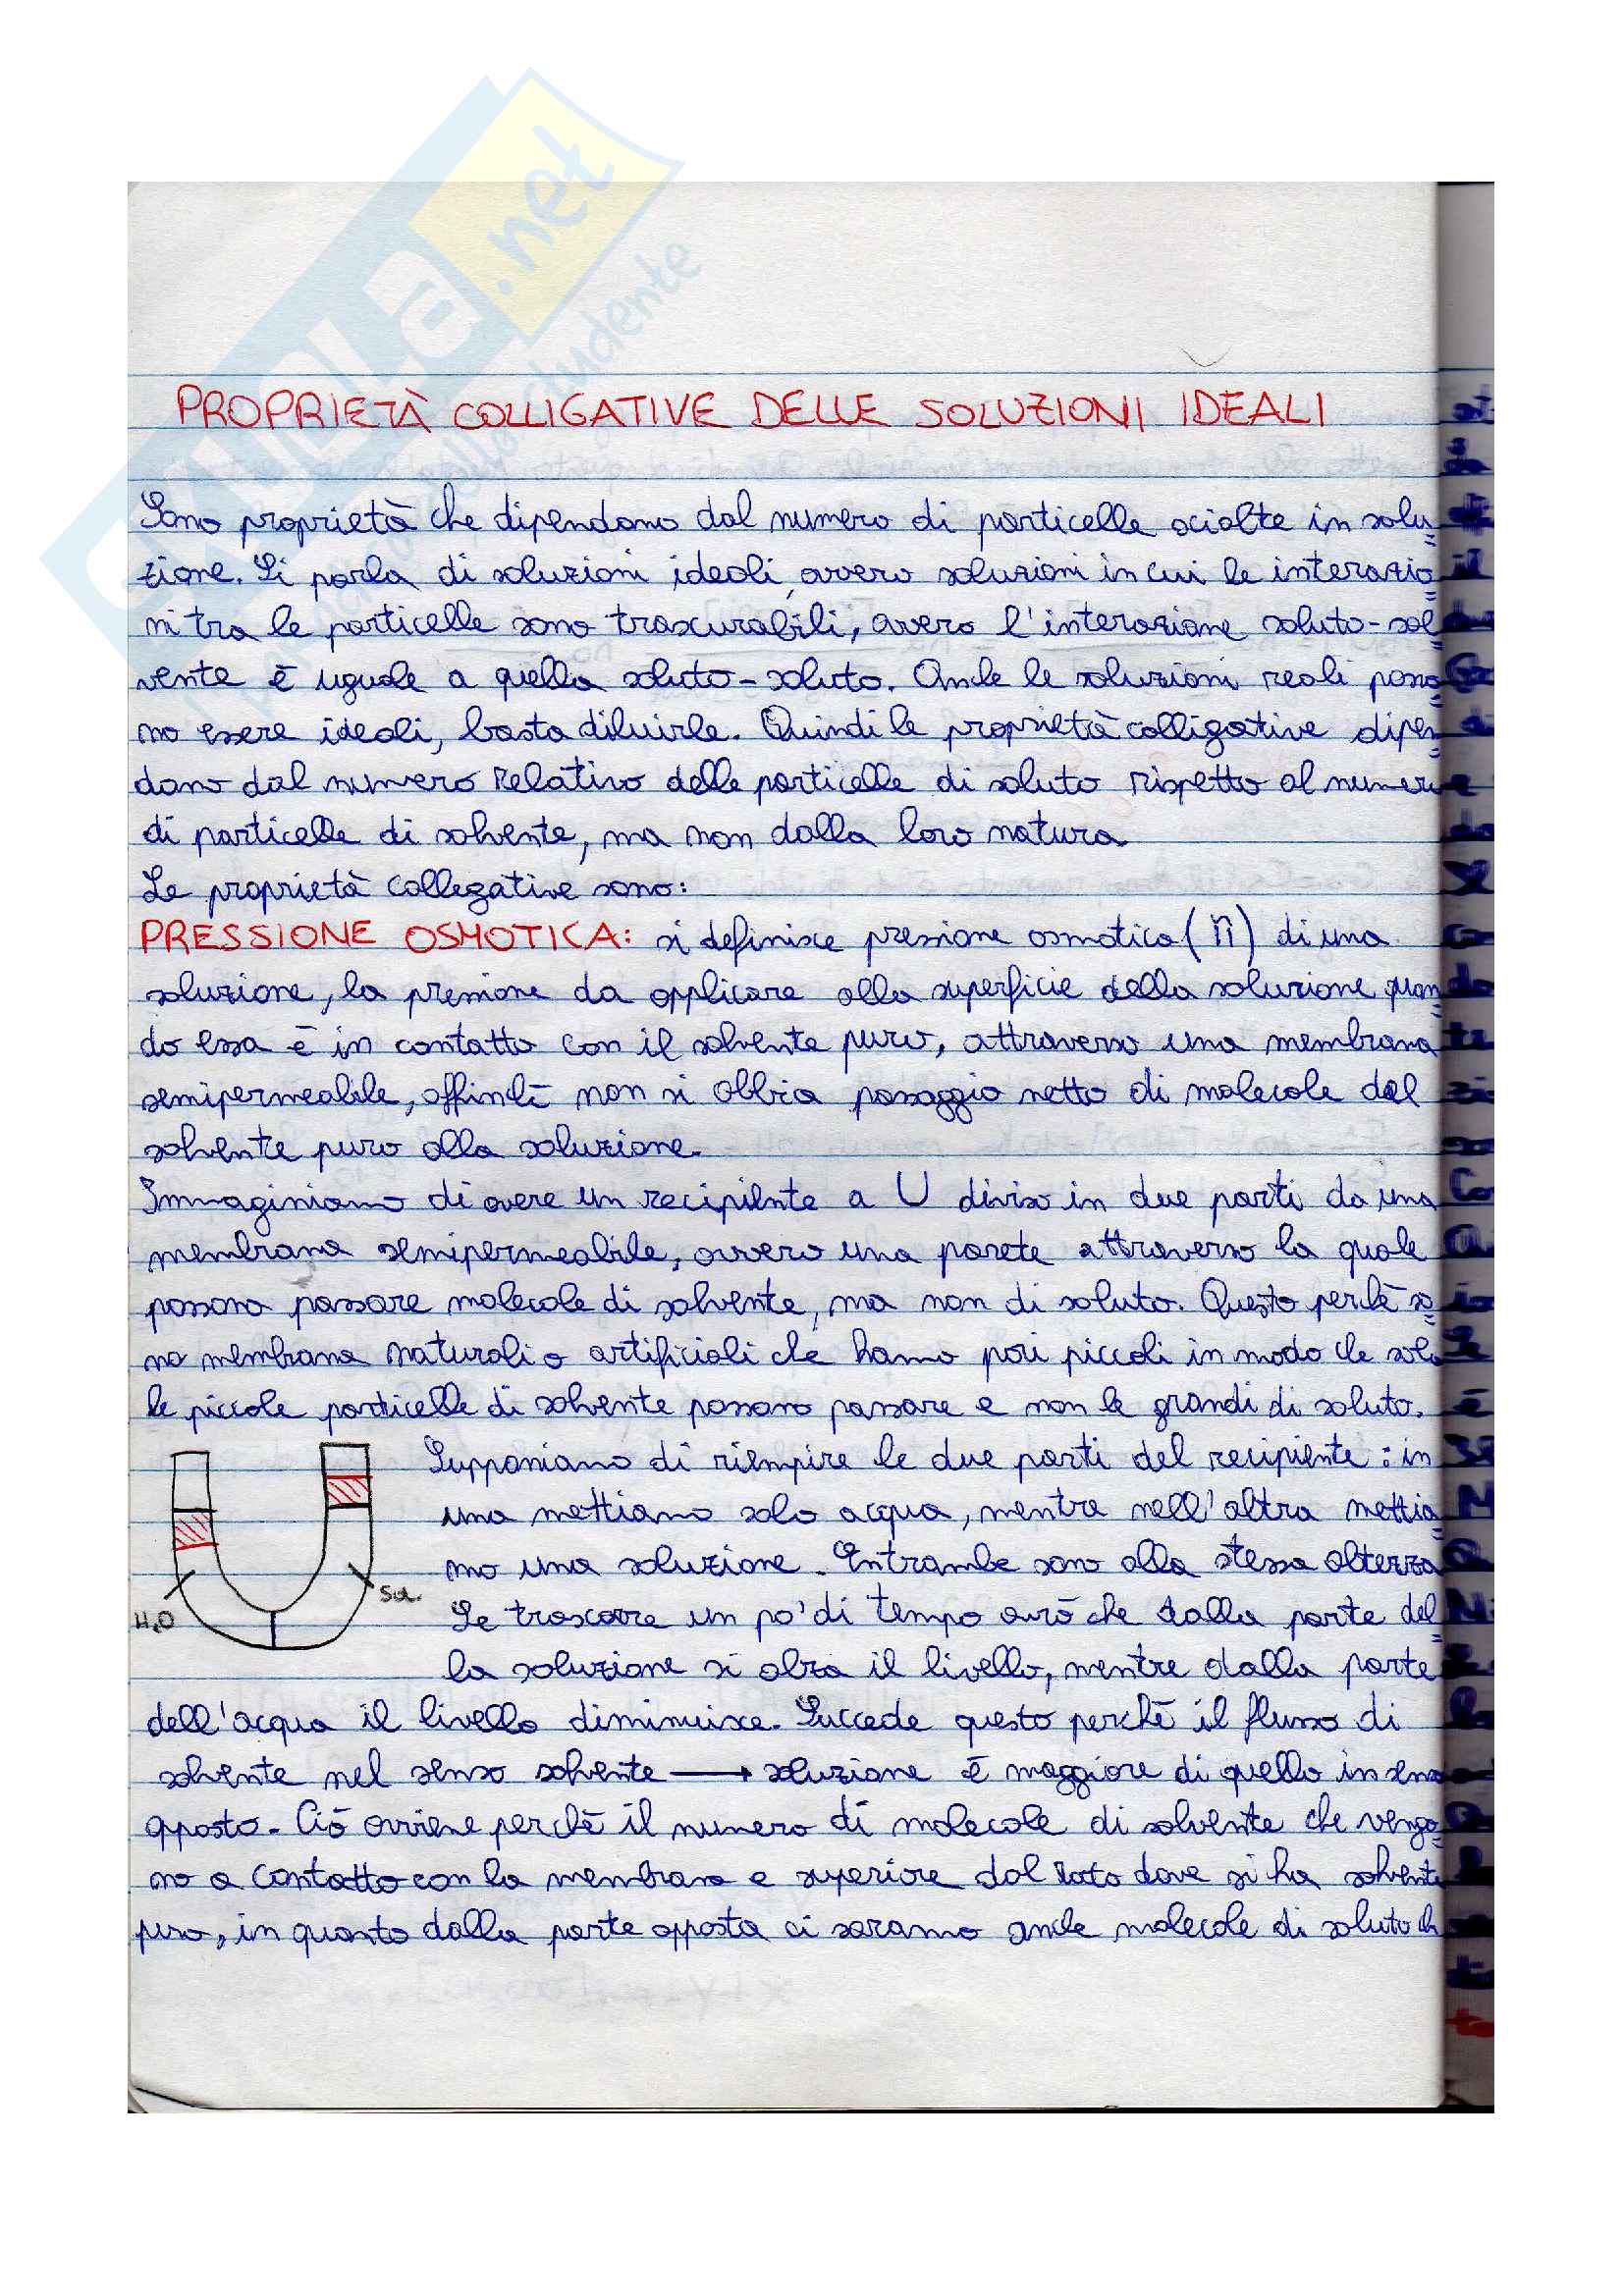 PROPRIETÀ COLLIGATIVE DELLE SOLUZIONI IDEALI
Sono proprietà che dipendono dal numero di particelle sciolte in solu=
zione. Si parla di soluzioni ideali, ovvero soluzioni in cui le interazio=
ni tra le particelle sono trascurabili, ovvero l'interazione soluto-sol=
vente è uguale a quella soluto-soluto. Anche le soluzioni reali posso=
no essere ideali, basta diluirle. Quindi le proprietà colligative dipen=
dono dal numero relativo delle particelle di soluto rispetto al numero
di particelle di solvente, ma non dalla loro natura.
Le proprietà collegative sono:
PRESSIONE OSMOTICA: si definisce pressione osmotica (π) di una
soluzione, la pressione da applicare alla superficie della soluzione quan=
do essa è in contatto con il solvente puro, attraverso una membrana
semipermeabile, affinchè non si abbia passaggio netto di molecole dal
solvente puro alla soluzione.
Immaginiamo di avere un recipiente a U diviso in due parti da una
membrana semipermeabile, ovvero una parete attraverso la quale
possono passare molecole di solvente, ma non di soluto. Questo perchè so=
no membrana naturali o artificiali che hanno pori piccoli in modo che solo
le piccole particelle di solvente possono passare e non le grandi di soluto.
Supponiamo di riempire le due parti del recipiente: in
una mettiamo solo acqua, mentre nell'altra mettia=
mo una soluzione. Entrambe sono alla stessa altezza
Se trascorre un po' di tempo avrò che dalla parte del=
la soluzione si alza il livello, mentre dalla parte
H₂O
Sol.
dell'acqua il livello diminuisce. Succede questo perchè il flusso di
solvente nel senso solvente → soluzione è maggiore di quello in senso
opposto. Ciò avviene perchè il numero di molecole di solvente che vengo=
no a contatto con la membrana e superiore dal lato dove si ha solvente
puro, in quanto dalla parte opposta ci saranno anche molecole di soluto ch
.net